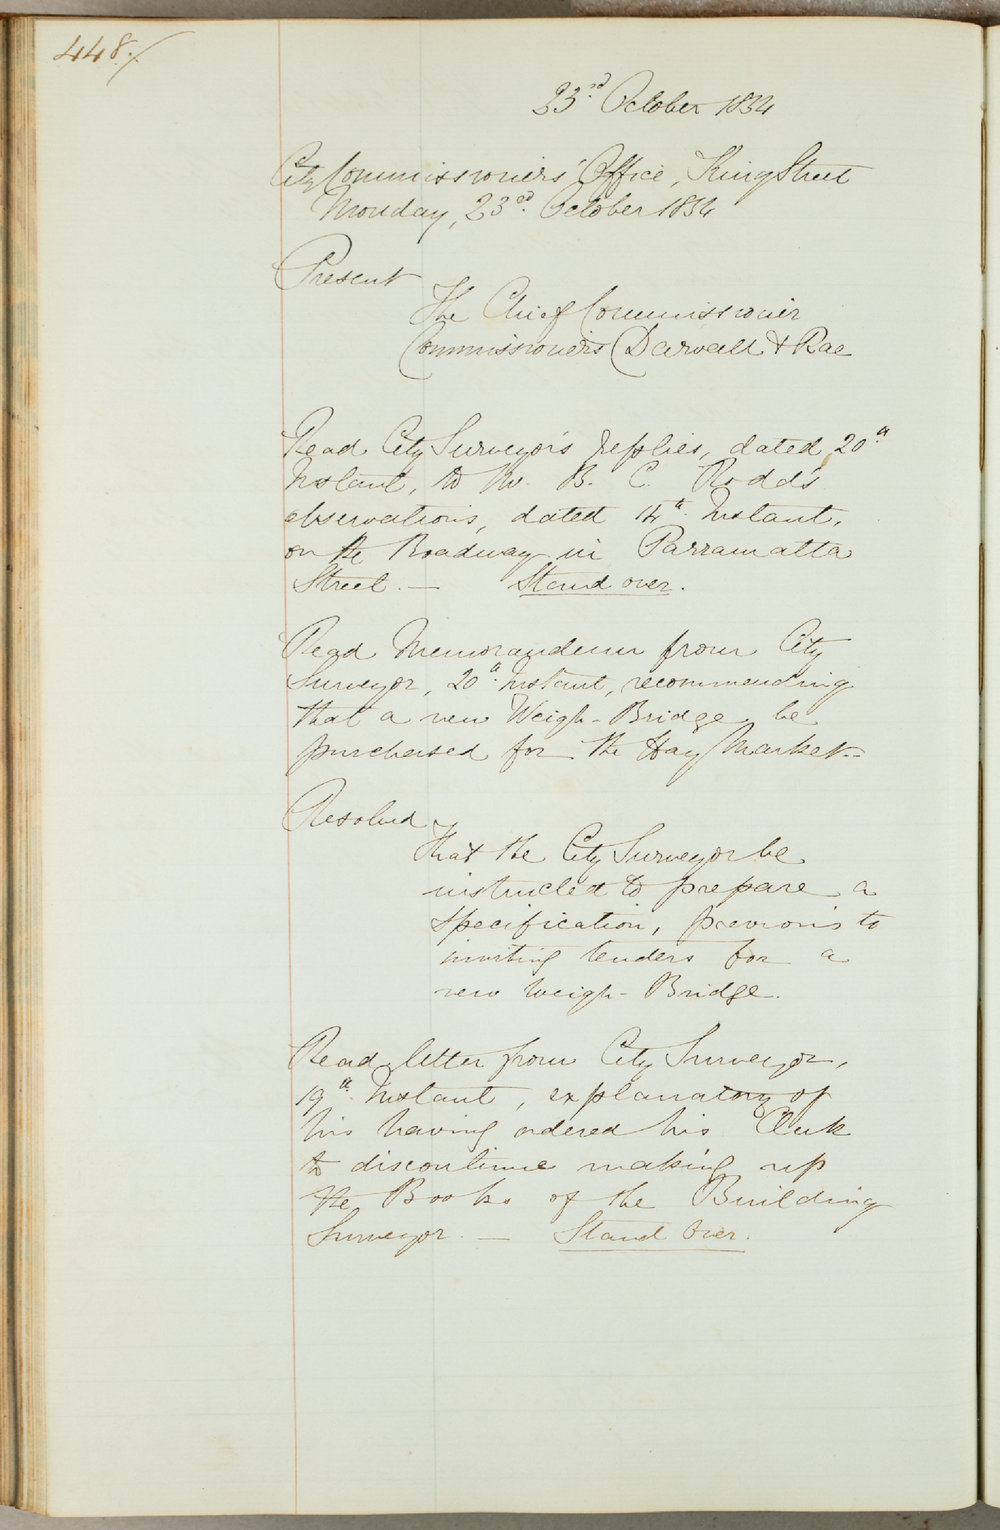 448./.
23rd October 1854
City Commissioners' Office, King Street
Monday, 23rd. October 1854
Present
The Chief Commissioner
Commissioners Darvall & Rae
Read City Surveyor's replies, dated 20th
Instant, to Mr. B. C. Rodd's
observations, dated 14th. Instant,
on the Roadway in Parramatta
Street. — Stand over.
Read Memorandum from City
Surveyor, 20th. Instant, recommending
that a new Weigh-Bridge be
purchased for the Hay Market—
Resolved
That the City Surveyor be
instructed to prepare a
specification, previous to
inviting tenders for a
new Weigh-Bridge.
Read letter from City Surveyor,
19th. Instant, explanatory of
his having ordered his Clerk
to discontinue making up
the Books of the Building
Surveyor. — Stand over.